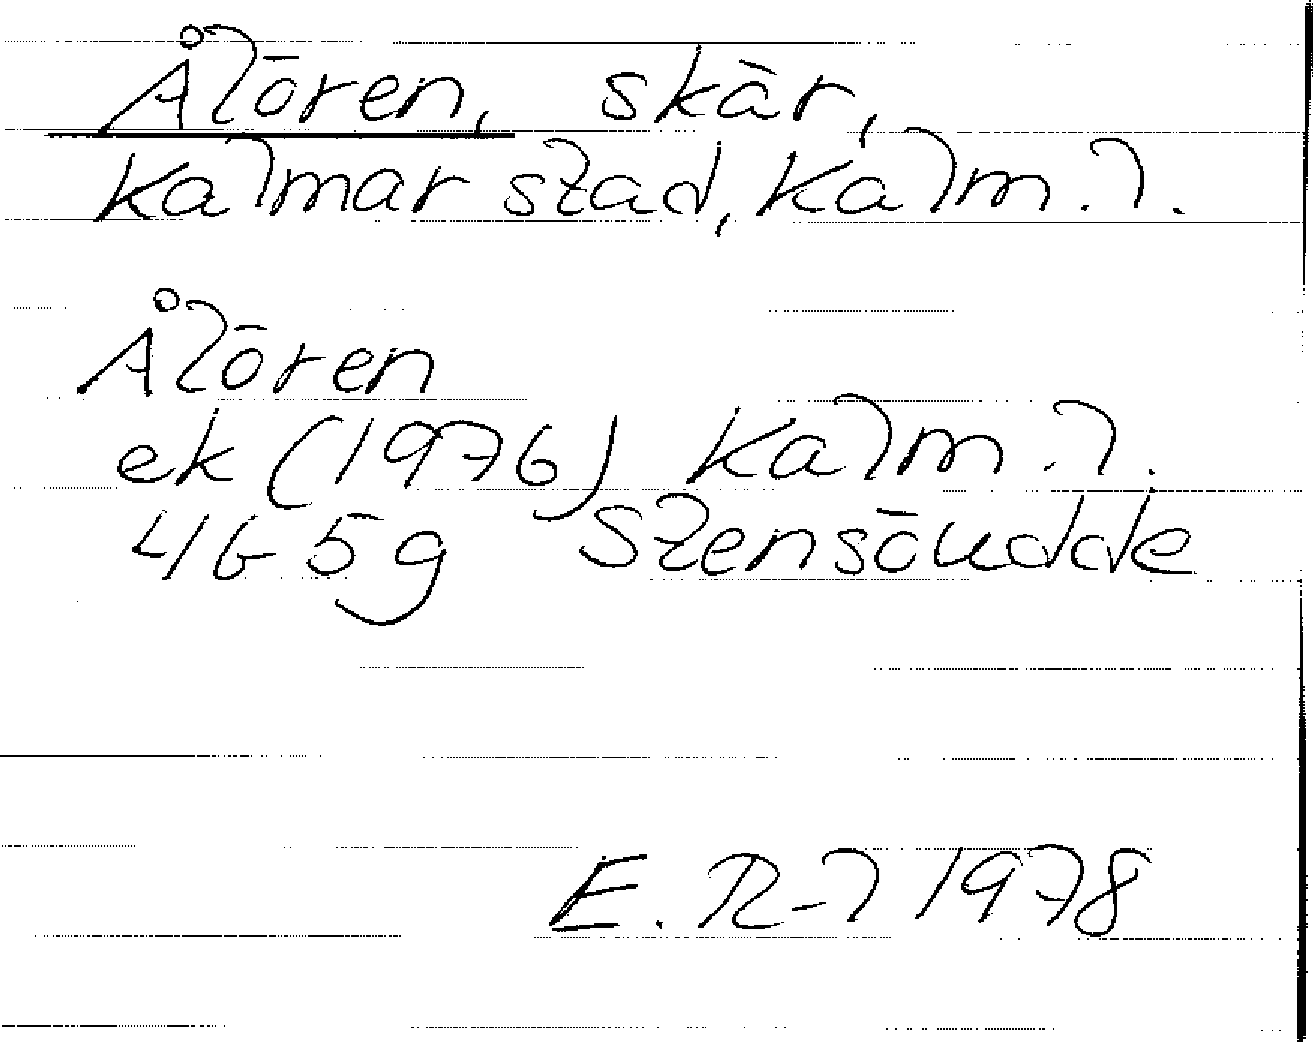 Ålören, skär,
Kalmar stad, Kalm. l.
Ålören
ek (1976) Kalm. l.
4G 5g Stensöudde
E. R-l 1978